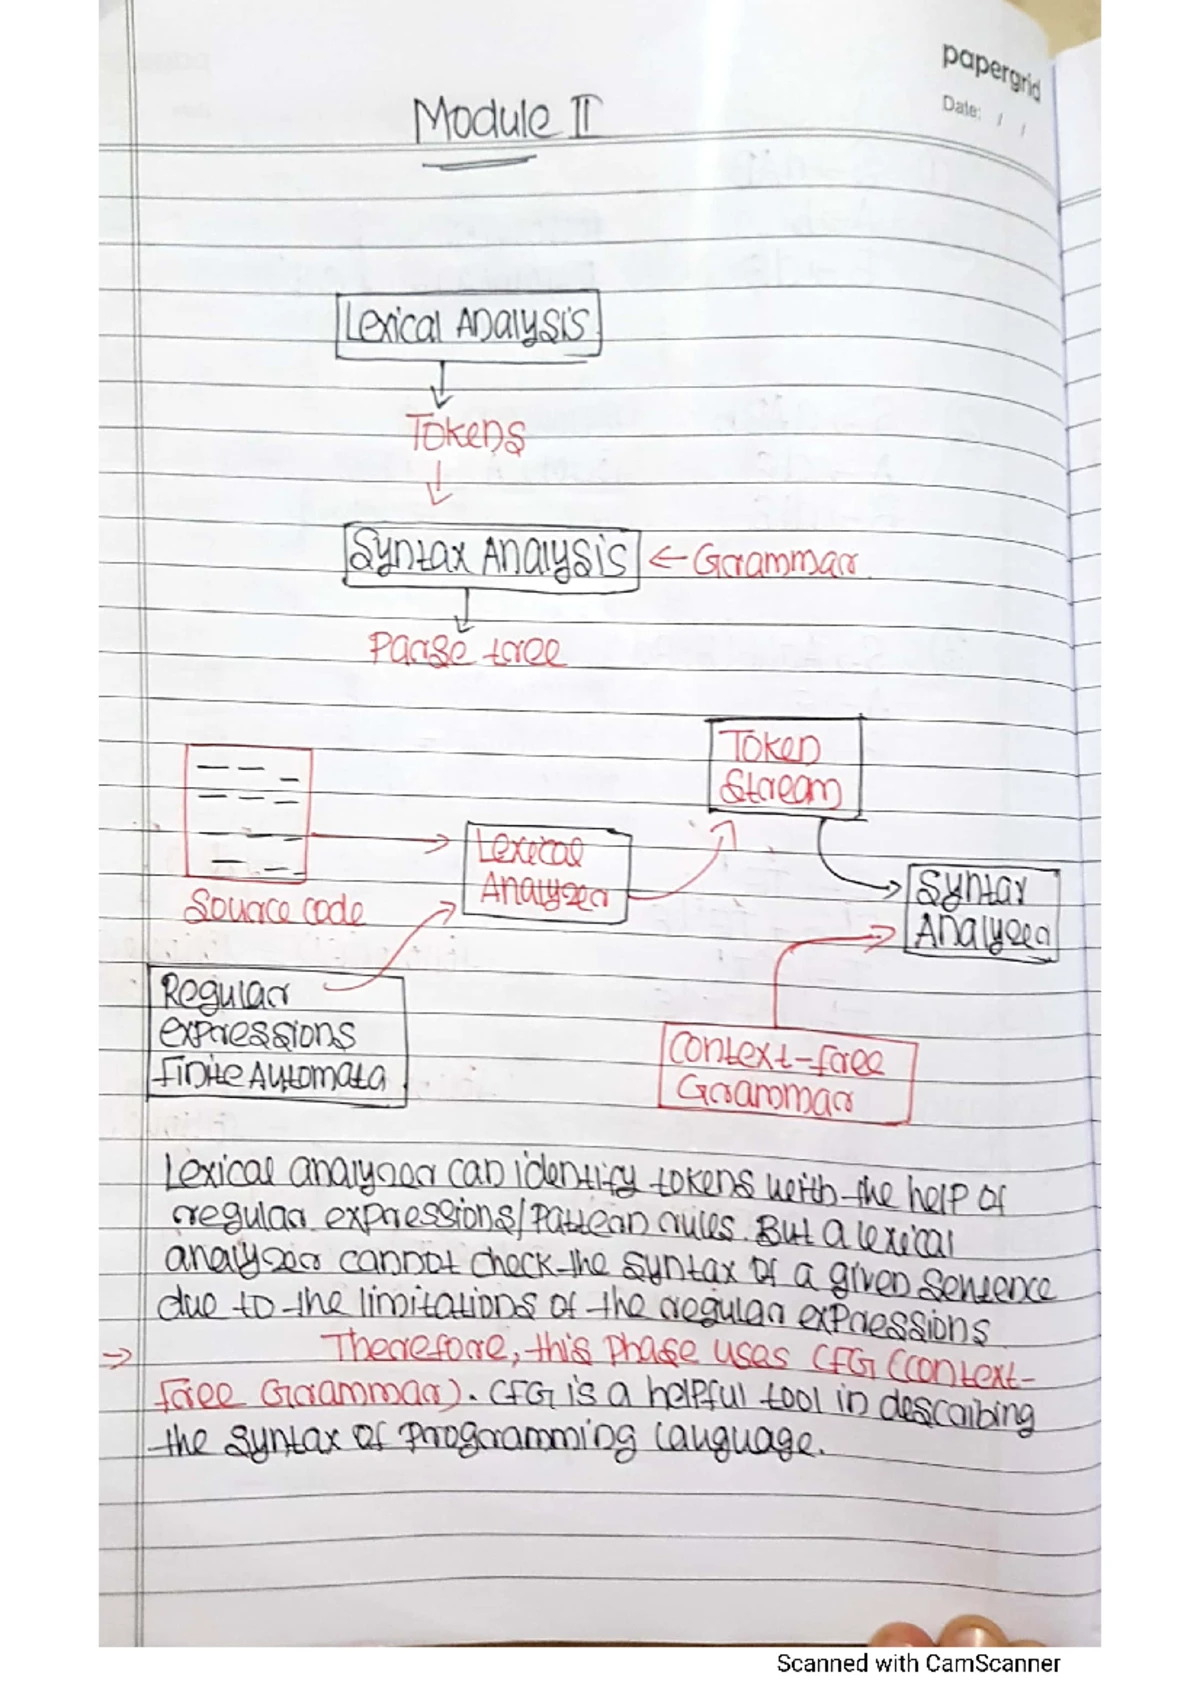 papergrid
Date: / /
Module II
Lexical Analysis
Tokens
Syntax Analysis ← Grammar
Parse tree
Token
Stream
Lexical
Analyzer
Syntax
Analyzer
Source code
Regular
expressions
Finite Automata
Context-free
Grammar
Lexical analyzer can identify tokens with the help of
regular expressions/pattern rules. But a lexical
analyzer cannot check the syntax of a given sentence
due to the limitations of the regular expressions
→ Therefore, this phase uses CFG (context-
free Grammar). CFG is a helpful tool in describing
the syntax of programming language.
Scanned with CamScanner